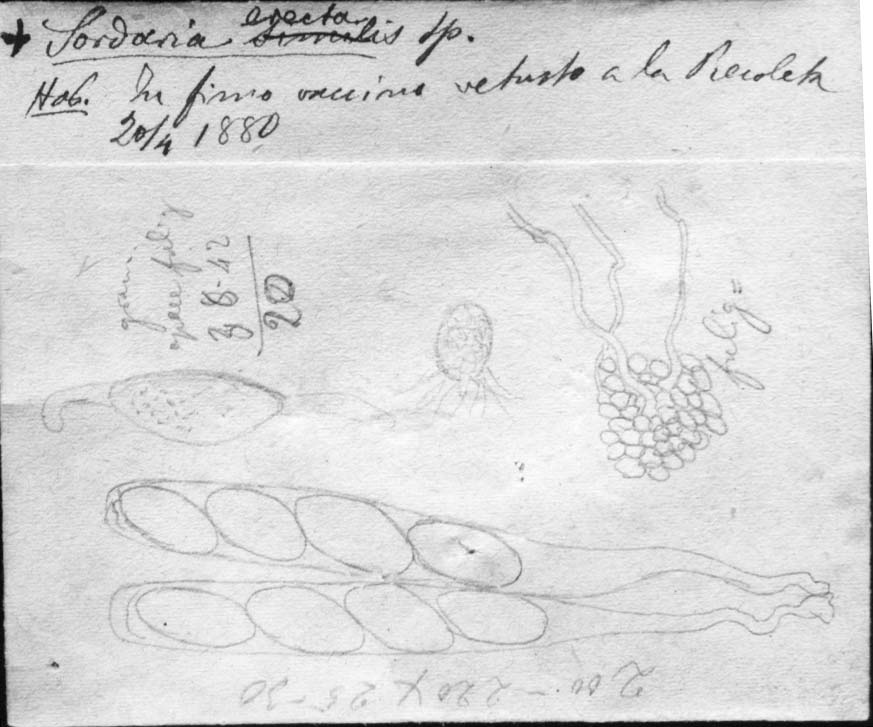 + Sordaria erecta simulis Sp.
Hab. In fimo vaccino vetusto a la Recoleta
20/4 1880
opace fulig
38-42
20
fulig=
200-220 X 25-30